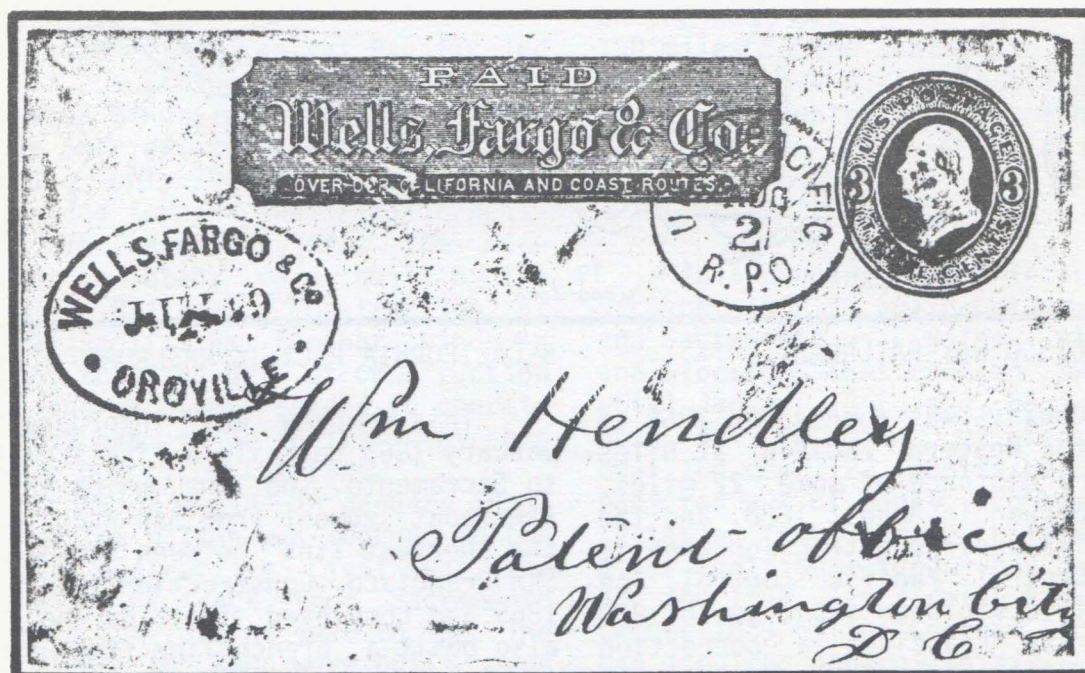 PAID
Wells, Fargo & Co.
OVER OUR CALIFORNIA AND COAST ROUTES.
U.S. POSTAGE
3 3
THREE CENTS
AUG
2
R.P.O
WELLS, FARGO & Co
OROVILLE
Wm Hendley
Patent office
Washington City
D C